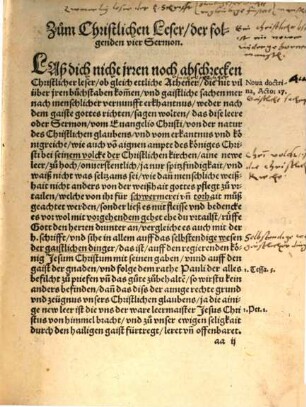 Zům Christlichen Leser / der fol-
genden vier Sermon.
LAß dich nicht jrren noch abschrecken
Christlicher leser / ob gleich etliche Athener / die nit vñ
über jren bůchstaben koͤmen / vnd gaistliche sachen nur
nach menschlicher vernunfft erkhantnus / weder nach
dem gaiste gottes richten / sagen wolten / das dise leere
der Sermon / vom Euangelio Christi / von der natur
des Christlichen glaubens / vnd vom erkantnus vnd koͤ-
nigreiche / wie auch vō aignen ampt des koͤniges Chri-
sti bei seinem volcke der Christlichen kirchen / aine new
leer / zů hoch / vnuerstentlich / ja nur spinfindigkait / vnd
waiß nicht was seltzams sei / wie dan̄ menschliche weiß-
hait nicht anders von der weißhait gottes pflegt zů vr-
tailen / welche von jhr für schwermerei vñ torhait můß
geachtet werden / sonder ließ es mit fleisse / vnd bedenck
es vor wol mit vorgehendem gebet ehe du vrtailst / růffe
Gott den herren drunter an / vergleiche es auch mit der
h. schrifft / vnd sihe in allem auff das selbstendige wort in
der gaistlichen dinger / das ist / auff den regierenden kö-
nig Jesum Christum mit seinen gaben / vnnd auff den
gaist der gnaden / vnd folge dem rathe Pauli der alles
befilcht zů prüefen vñ das gůte zůbehaltē / so wirstu kein
anders befinden / dan̄ das diß der ainige rechte grund
vnd zeügnus vnsers Christlichen glaubens / ja die aini-
ge new leer ist die vns der ware leermaister Jesus Chri-
stus von himmel bracht / vnd zů vnser ewigen seligkait
durch den hailigen gaist fürtregt / leret vñ offenbaret.
aa ij
Noua doctri-
na, Acto: 17.
1. Tess. 5.
1. Pet. 1.